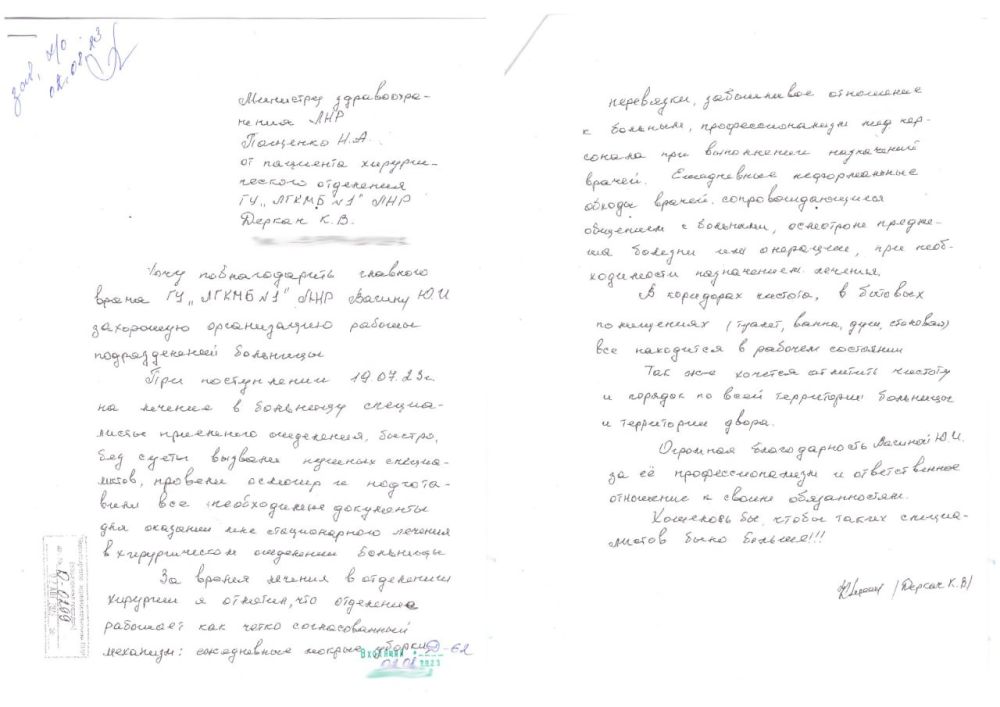 зав. х/о
02.08.23
Министру здравоохра-
нения ЛНР
Пащенко Н.А.
от пациента хирурги-
ческого отделения
ГУ „ЛГКМБ №1" ЛНР
Деркач К.В.
Хочу поблагодарить главного
врача ГУ „ЛГКМБ №1" ЛНР Васину Ю.И
за хорошую организацию работы
подразделений больницы
При поступлении 19.07.23г.
на лечение в больницу специа-
листы приемного отделения, быстро,
без суеты вызвали нужных специа-
листов, провели осмотр и подгота-
вили все необходимые документы
для оказании мне стационарного лечения
в хирургическом отделении больницы
За время лечения в отделении
хирургии я отметил, что отделение
работает как четко согласованный
механизм: ежедневные мокрые уборки,
Входящий Д-62
02.08 2023
Д-0200
перевязки, заботливое отношение
к больным, профессионализм мед пер-
сонала при выполнении назначений
врачей. Ежедневные неформальные
обходы врачей, сопровождающиеся
общением с больными, осмотром предме-
та болезни или операции, при необ-
ходимости назначением лечения.
В коридорах чистота, в бытовых
помещениях (туалет, ванна, душ, столовая)
все находится в рабочем состоянии
Так же хочется отметить чистоту
и порядок по всей территории больницы
и территории двора.
Огромная благодарность Васиной Ю.И.
за её профессионализм и ответственное
отношение к своим обязанностям.
Хотелось бы, чтобы таких специа-
листов было больше!!!
/Деркач К.В/